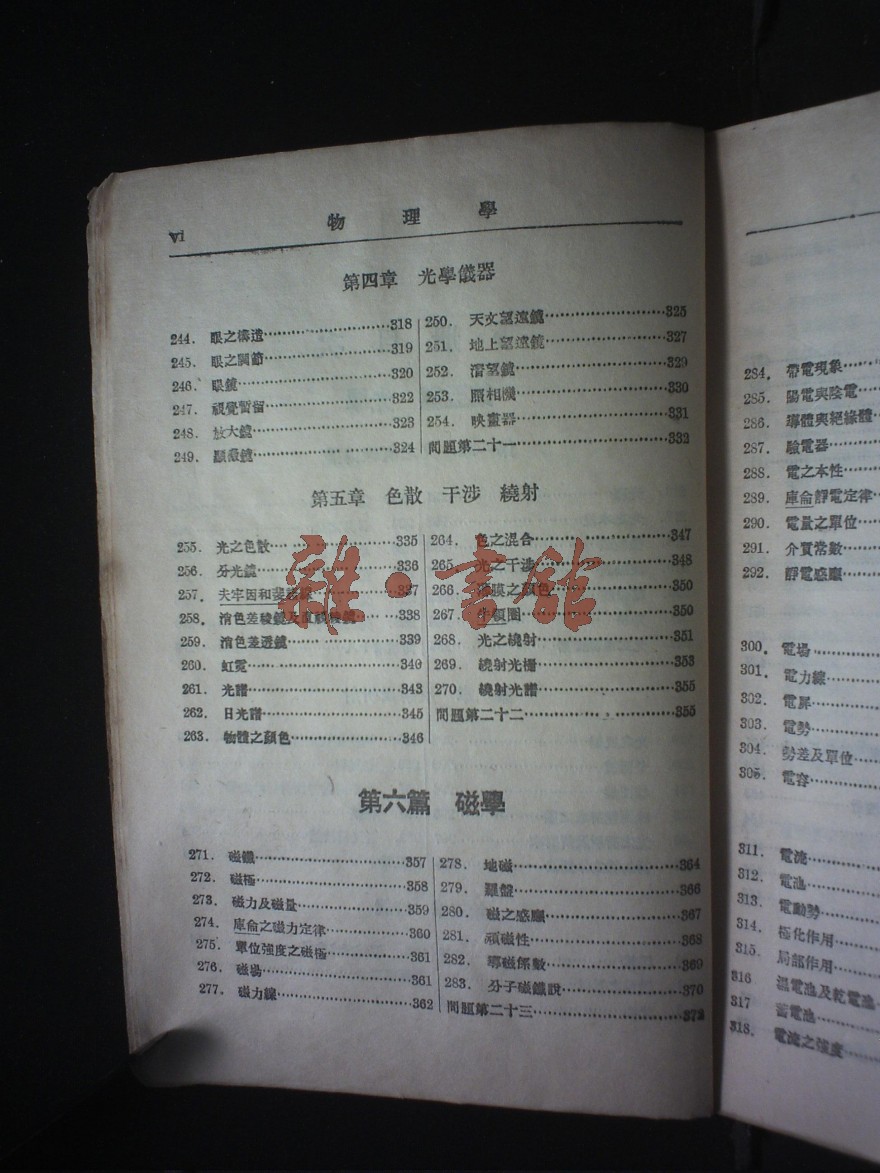 vi
物理學
第四章 光學儀器
244. 眼之構造………318
245. 眼之調節………319
246. 眼鏡………320
247. 視覺暫留………322
248. 放大鏡………323
249. 顯微鏡………324
250. 天文望遠鏡………325
251. 地上望遠鏡………327
252. 潛望鏡………329
253. 照相機………330
254. 映畫器………331
問題第二十一………332
第五章 色散 干涉 繞射
255. 光之色散………335
256. 分光鏡………336
257. 夫牢因和斐線………337
258. 消色差稜鏡及直視稜鏡………338
259. 消色差透鏡………339
260. 虹霓………340
261. 光譜………343
262. 日光譜………345
263. 物體之顏色………346
264. 色之混合………347
265. 光之干涉………348
266. 薄膜之顏色………350
267. 牛頓圈………350
268. 光之繞射………351
269. 繞射光柵………353
270. 繞射光譜………355
問題第二十二………355
第六篇 磁學
271. 磁鐵………357
272. 磁極………358
273. 磁力及磁量………359
274. 庫侖之磁力定律………360
275. 單位強度之磁極………361
276. 磁場………361
277. 磁力線………362
278. 地磁………364
279. 羅盤………366
280. 磁之感應………367
281. 頑磁性………368
282. 導磁係數………369
283. 分子磁鐵說………370
問題第二十三………372
284. 帶電現象
285. 陽電與陰電
286. 導體與絕緣體
287. 驗電器
288. 電之本性
289. 庫侖靜電定律
290. 電量之單位
291. 介質常數
292. 靜電感應
300. 電場
301. 電力線
302. 電屏
303. 電勢
304. 勢差及單位
305. 電容
311. 電流
312. 電池
313. 電動勢
314. 極化作用
315. 局部作用
316 濕電池及乾電池
317 蓄電池
318. 電流之強度
雜·書館